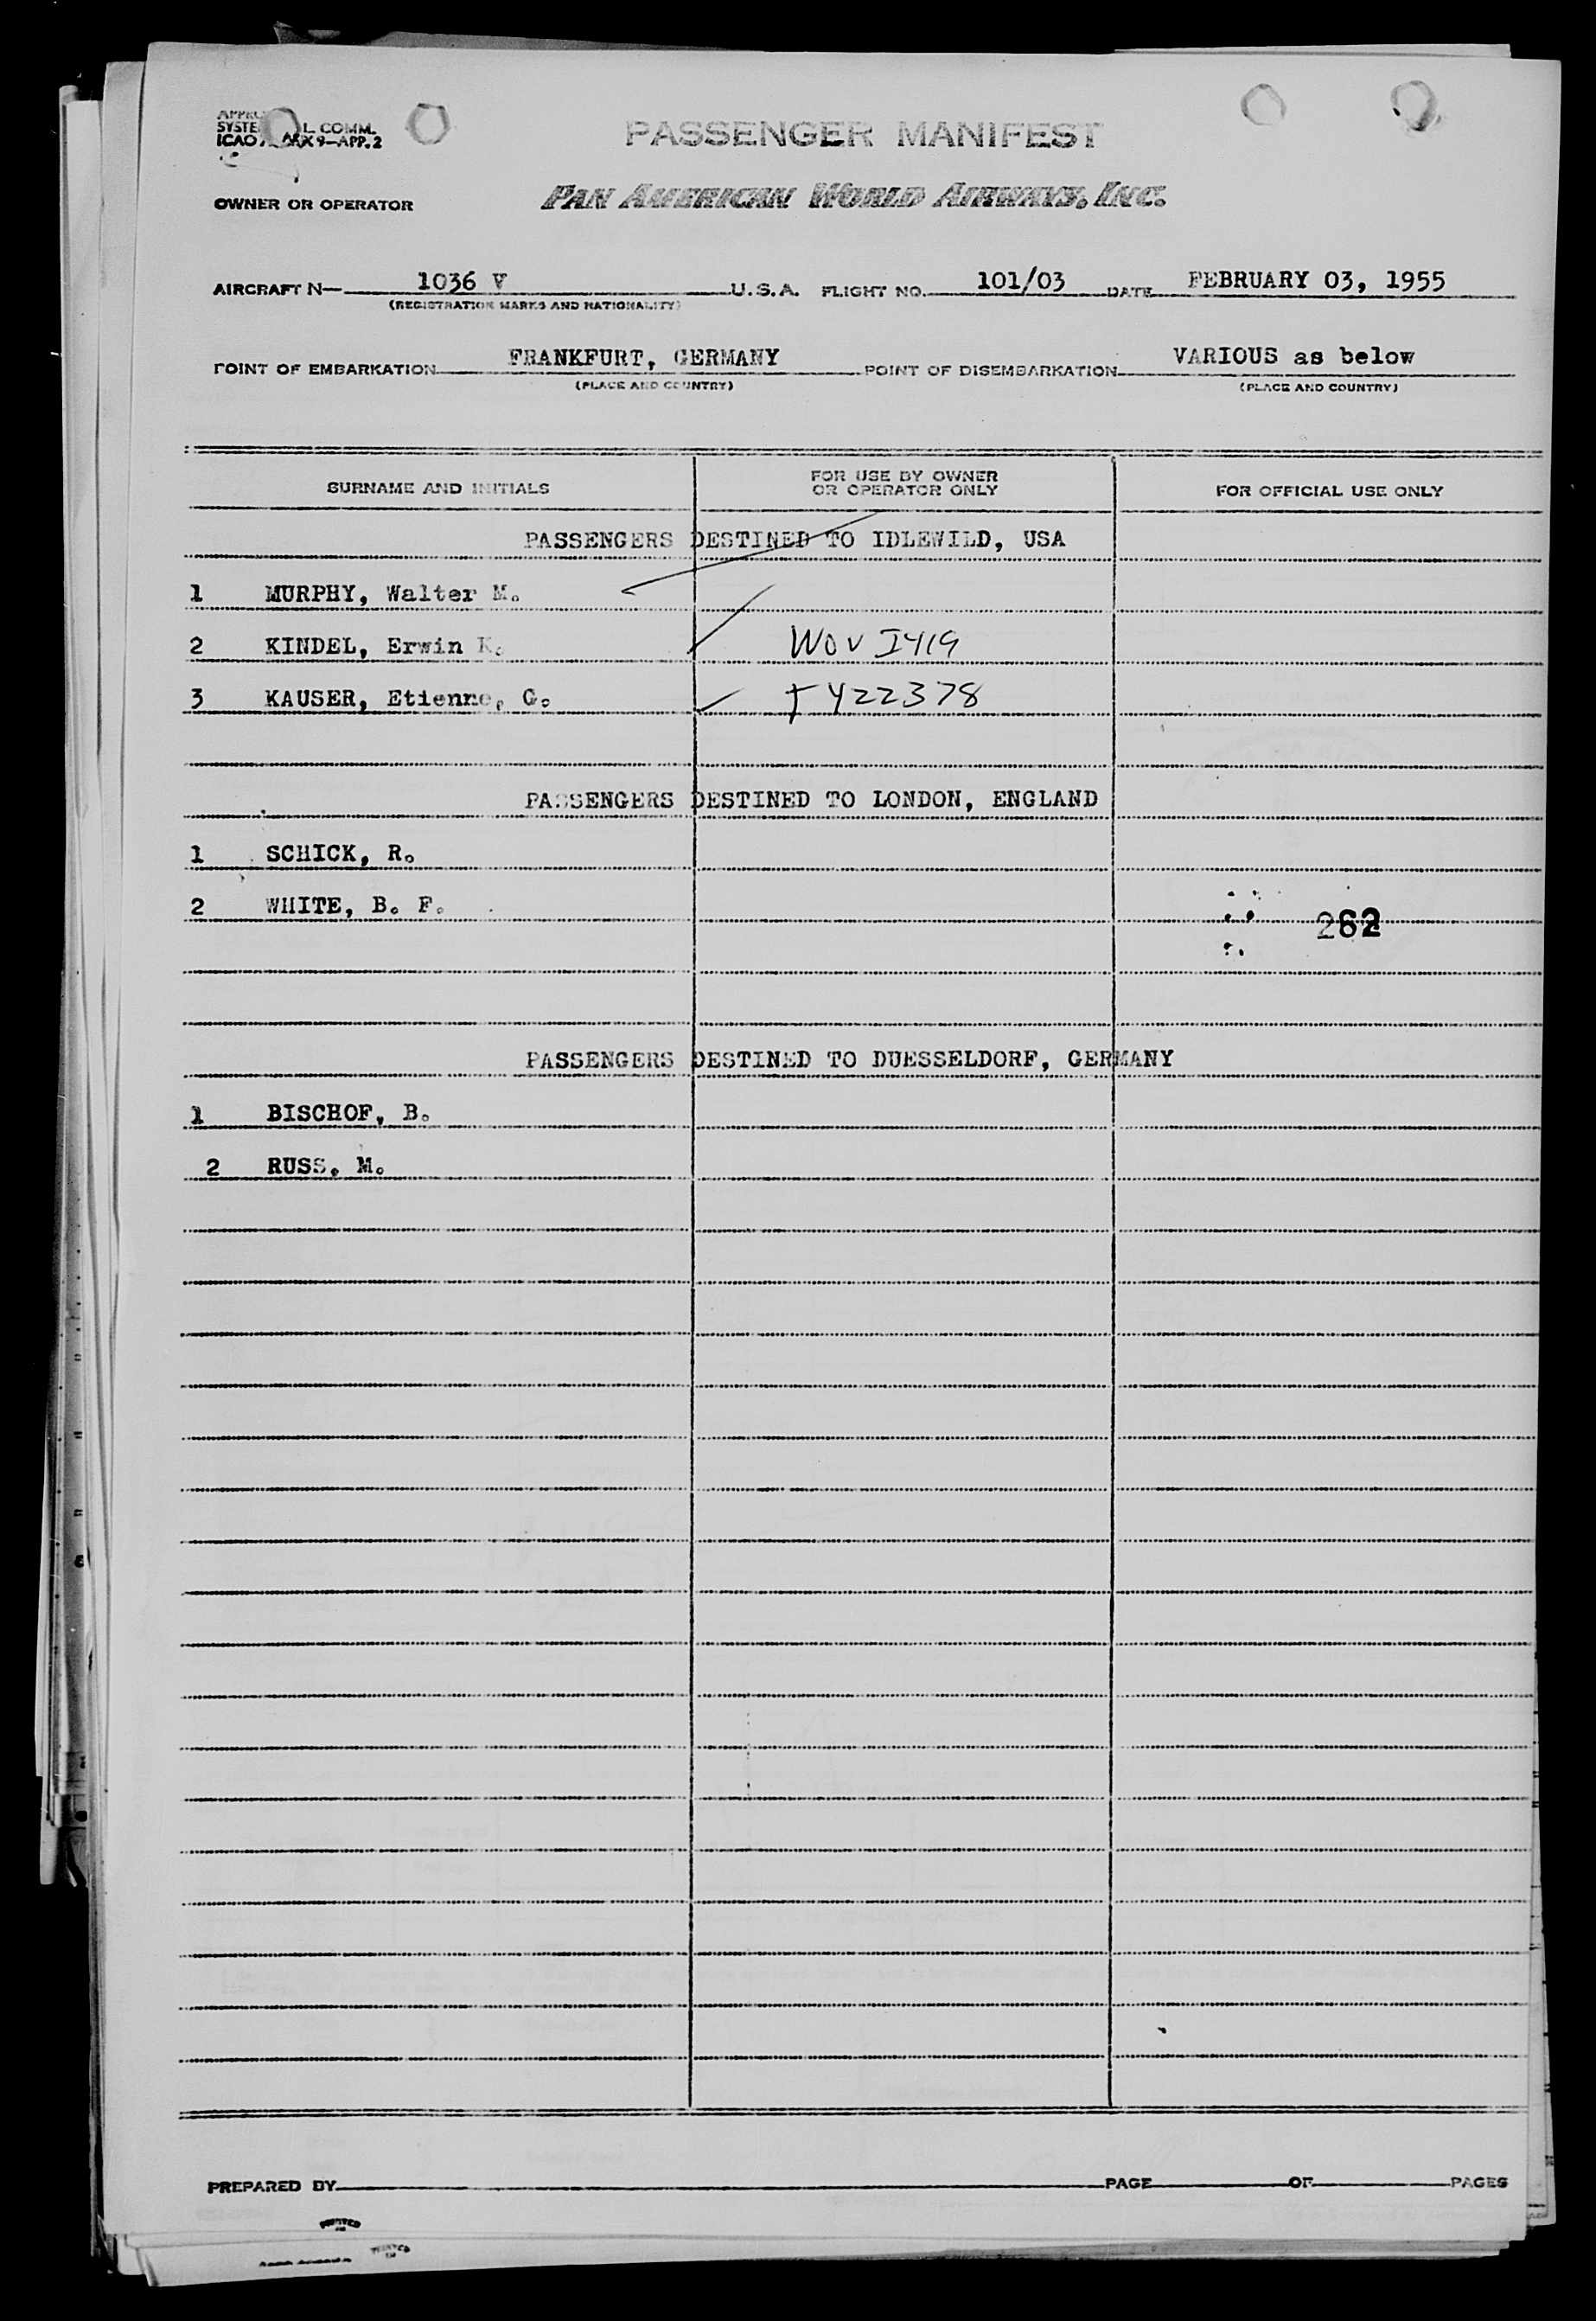 SYSTE L. COMM.
ICAO 9-APP.2
PASSENGER MANIFEST
OWNER OR OPERATOR PAN AMERICAN WORLD AIRWAYS, INC.
AIRCRAFT N- 1036 V U.S.A. FLIGHT NO. 101/03 DATE FEBRUARY 03, 1955
(REGISTRATION MARKS AND NATIONALITY)
POINT OF EMBARKATION FRANKFURT, GERMANY POINT OF DISEMBARKATION VARIOUS as below
(PLACE AND COUNTRY) (PLACE AND COUNTRY)
SURNAME AND INITIALS FOR USE BY OWNER OR OPERATOR ONLY FOR OFFICIAL USE ONLY
PASSENGERS DESTINED TO IDLEWILD, USA
1 MURPHY, Walter M.
2 KINDEL, Erwin K. WOV I419
3 KAUSER, Etienne, G. T422378
PASSENGERS DESTINED TO LONDON, ENGLAND
1 SCHICK, R.
2 WHITE, B. F.
262
PASSENGERS DESTINED TO DUESSELDORF, GERMANY
1 BISCHOF, B.
2 RUSS, M.
PREPARED BY PAGE OF PAGES
PRINTED